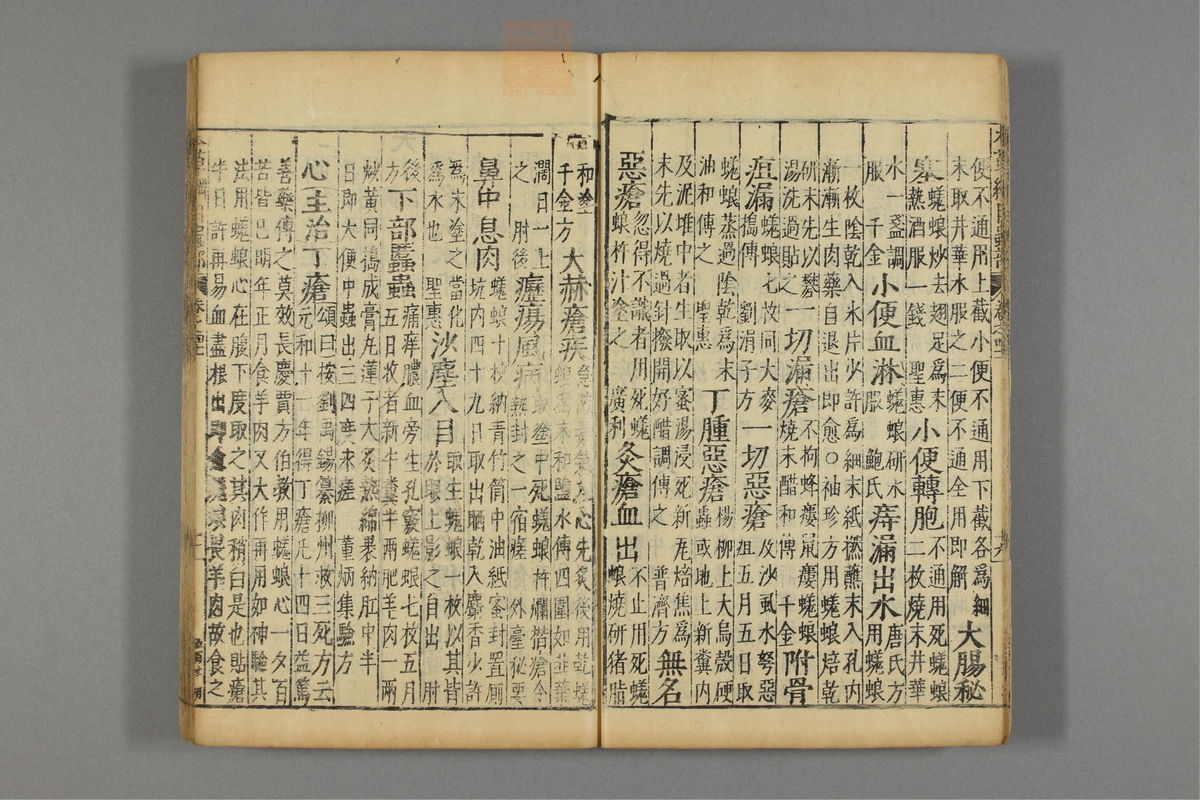 便不通用上截小便不通用下截各為細
末取井華水服之二便不通全用即解
大腸秘
塞
蜣螂炒去翅足為末
熱酒服一錢 聖惠
小便轉胞
不通用死蜣螂
二枚燒末井華
水一盞調
服 千金
小便血淋
蜣螂研水
服 鮑氏
痔漏出水
唐氏方
用蜣螂
一枚陰乾入氷片少許為細末紙撚蘸末入孔內
漸漸生肉藥自退出即愈○袖珍方用蜣螂焙乾
研末先以礬
湯洗過貼之
一切漏瘡
不拘蜂瘻鼠瘻蜣螂
燒末醋和傅 千金
附骨
疽漏
蜣螂七枚同大麥
搗傅 劉涓子方
一切惡瘡
及沙虱水弩惡
疽五月五日取
蜣螂蒸過陰乾為末
油和傅之 聖惠
丁腫惡瘡
楊柳上大烏殼硬
蟲或地上新糞內
及泥堆中者生取以蜜湯浸死新瓦焙焦為
末先以燒過針撥開好醋調傅之 普濟方
無名
惡瘡
忽得不識者用死蜣
螂杵汁塗之 廣利
灸瘡血出
不止用死蜣
螂燒研猪脂
和塗
千金方
大赫瘡疾
急防毒氣入心先灸後用乾蜣
螂為末和鹽水傅四圍如韭葉
濶日一上
之 肘後
癧瘍風病
取塗中死蜣螂杵爛揩瘡令
熱封之一宿瘥 外臺秘要
鼻中息肉
蜣螂十枚納青竹筒中油紙密封置厠
坑內四十九日取出晒乾入麝香少許
為末塗之當化
為水也 聖惠
沙塵入目
取生蜣螂一枚以其背
於眼上影之自出 肘
後
方
下部䘌蟲
痛痒膿血旁生孔竅蜣螂七枚五月
五日收者新牛糞半兩肥羊肉一兩
炒黃同搗成膏丸蓮子大炙熱綿裹納肛中半
日即大便中蟲出三四度永瘥 董炳集驗方
心主治丁瘡
頌曰按劉禹錫纂柳州救三死方云
元和十一年得丁瘡凡十四日益篤
善藥傅之莫效長慶賈方伯教用蜣螂心一夕百
苦皆已明年正月食羊肉又大作再用如神驗其
法用蜣螂心在腹下度取之其肉稍白是也貼瘡
半日許再易血盡根出即愈蜣螂畏羊肉故食之